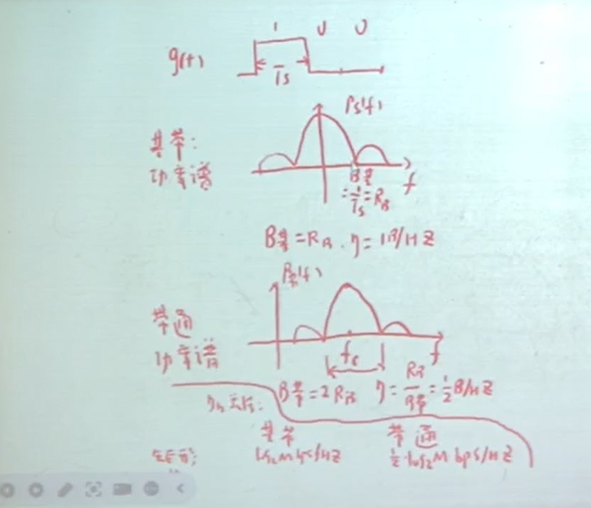 1 0 0
g(t)
Ts
Ps(f)
基带:
功率谱
B带
=1/Ts=RB
f
B带=RB, η=1B/HZ
P带(f)
带通
功率谱
fc
f
B带=2RB η=RB/B带=1/2B/HZ
基带 带通
log2M bps/HZ 1/2 log2M bps/HZ